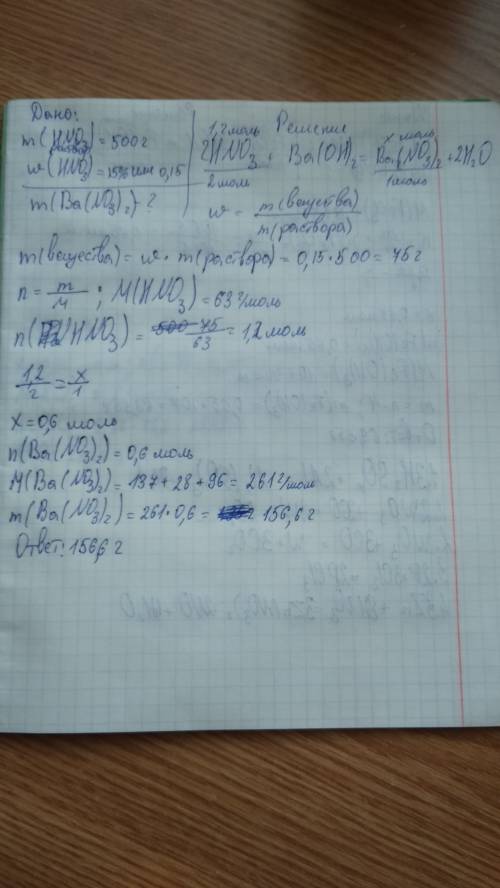 Дано:
m(HNO₃) = 500 г
раствор
w(HNO₃) = 15% или 0,15
m(Ba(NO₃)₂) - ?
Решение
1,2 моль x моль
2HNO₃ + Ba(OH)₂ = Ba(NO₃)₂ + 2H₂O
2 моль 1 моль
w = m(вещества) / m(раствора)
m(вещества) = w · m(раствора) = 0,15 · 500 = 75 г
n = m/M ; M(HNO₃) = 63 г/моль
n(HNO₃) = 75/63 = 1,2 моль
1,2/2 = x/1
x = 0,6 моль
n(Ba(NO₃)₂) = 0,6 моль
M(Ba(NO₃)₂) = 137 + 28 + 96 = 261 г/моль
m(Ba(NO₃)₂) = 261 · 0,6 = 156,6 г
Ответ: 156,6 г